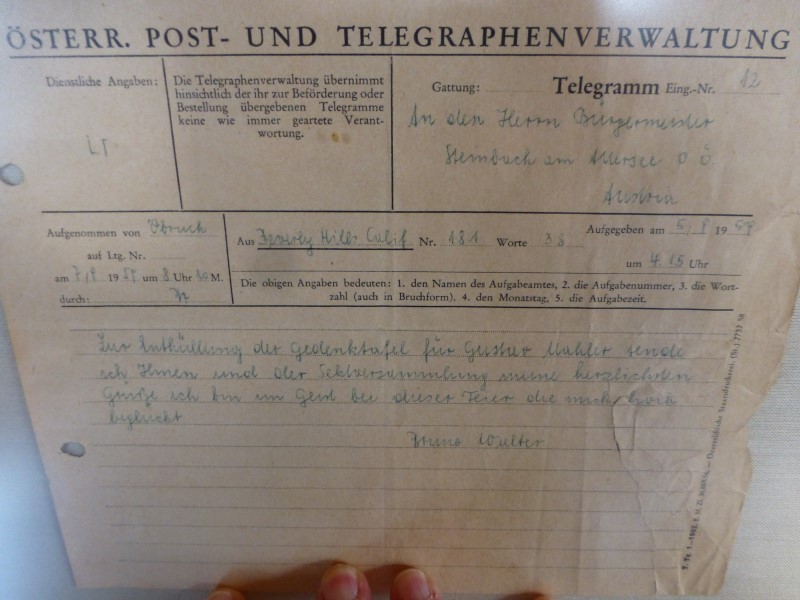 ÖSTERR. POST- UND TELEGRAPHENVERWALTUNG
Dienstliche Angaben:
LT
Die Telegraphenverwaltung übernimmt
hinsichtlich der ihr zur Beförderung oder
Bestellung übergebenen Telegramme
keine wie immer geartete Verant-
wortung.
Gattung: Telegramm Eing.-Nr. 12
An den Herrn Bürgermeister
Steinbach am Attersee O Ö
Austria
Aufgenommen von Vbruck
auf Ltg. Nr.
am 7,9 1959 um 8 Uhr M.
durch:
Aus Beverly Hills Calif Nr. 181 Worte 38
Aufgegeben am 5, 9 1959
um 4.15 Uhr
Die obigen Angaben bedeuten: 1. den Namen des Aufgabeamtes, 2. die Aufgabenummer, 3. die Wort-
zahl (auch in Bruchform). 4. den Monatstag, 5. die Aufgabezeit.
Zur Enthüllung der Gedenktafel für Gustav Mahler sende
ich Ihnen und der Festversammlung meine herzlichsten
Grüße ich bin im Geist bei dieser Feier die mich hoch
beglückt
Bruno Walter